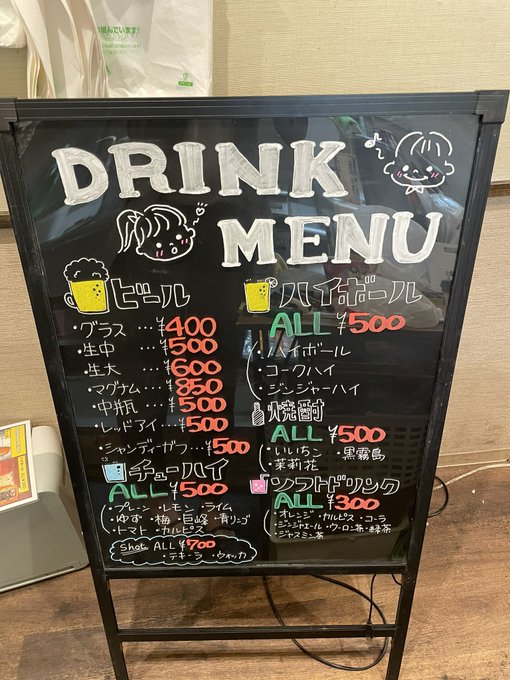 組んでいます!
DRINK
MENU
ビール
・グラス…¥400
・生中…¥500
・生大…¥600
・マグナム…¥850
・中瓶…¥500
・レッドアイ…¥500
・シャンディガフ…¥500
チューハイ
ALL ¥500
・プレーン・レモン・ライム
・ゆず・梅・巨峰・青リンゴ
・トマト・カルピス
shot ALL ¥700
・テキーラ・ウォッカ
ハイボール
ALL ¥500
・ハイボール
・コークハイ
・ジンジャーハイ
焼酎
ALL ¥500
・いいちこ・黒霧島
・茉莉花
ソフトドリンク
ALL ¥300
・オレンジ・カルピス・コーラ
・ジンジャエール・ウーロン茶・緑茶
・ジャスミン茶